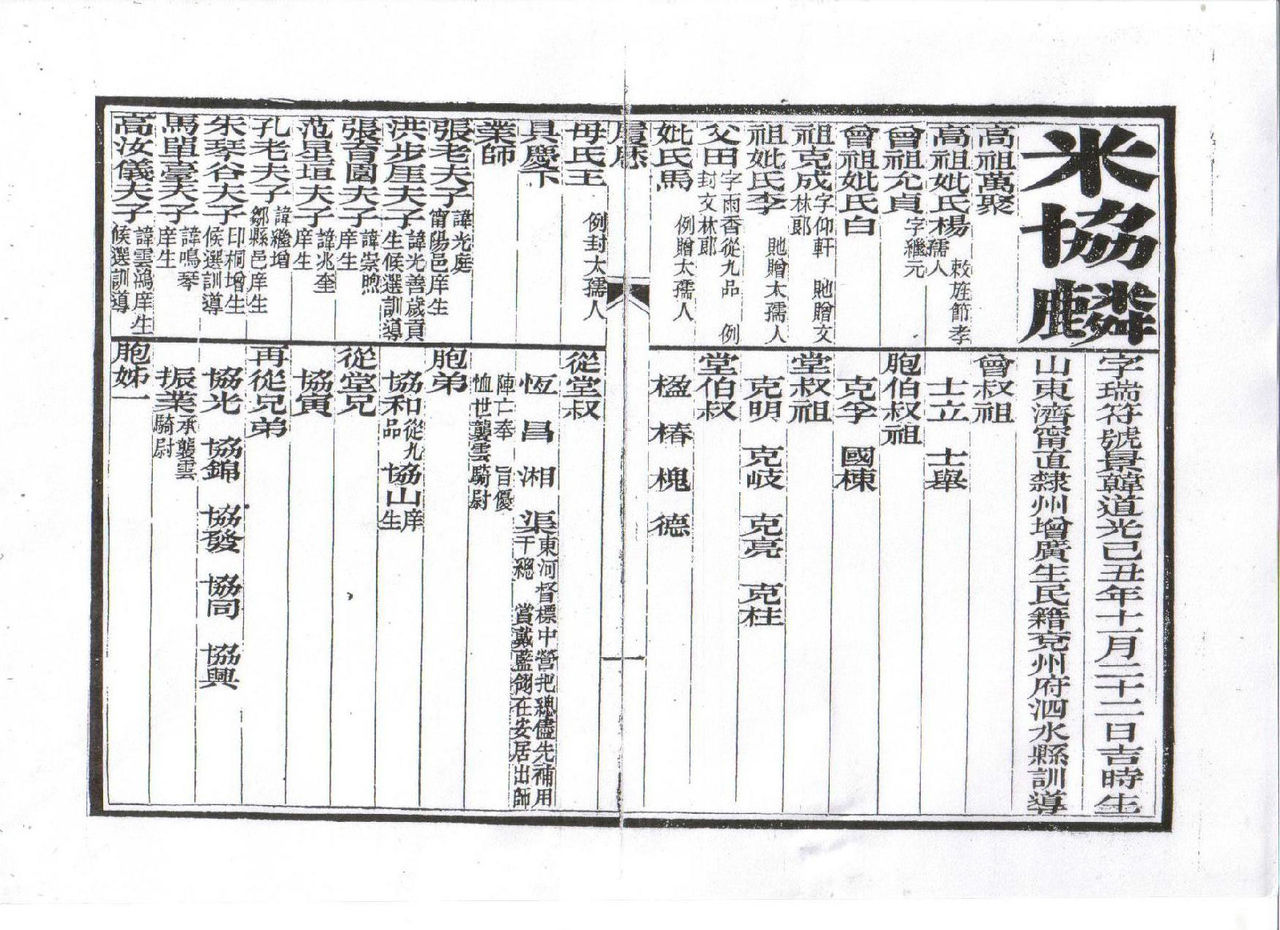 米協麟
字瑞符號景韓道光己丑年十一月二十二日吉時生
山東濟甯直隸州增廣生民籍兗州府泗水縣訓導
高祖萬聚
高祖妣氏楊 孺人 敕旌節孝
曾祖允貞 字繼元
曾祖妣氏白
祖克成 字仰軒 貤贈文林郎
祖妣氏李 貤贈太孺人
父田 字雨香從九品 例封文林郎
妣氏馬 例贈太孺人
曾叔祖
士立 士舉
胞伯叔祖
克孚 國棟
堂叔祖
克明 克岐 克亮 克柱
堂伯叔
楹 椿 槐 德
履歷
母氏王 例封太孺人
具慶下
業師
張老夫子 諱光庭 甯陽邑庠生
洪步崖夫子 諱光善歲貢生候選訓導
張育園夫子 諱崇煦 庠生
范星垣夫子 諱兆奎 庠生
孔老夫子 諱繼增 鄒縣邑庠生
朱琴谷夫子 印桐增生 候選訓導
馬單臺夫子 諱鳴琴 庠生
高汝儀夫子 諱雲鴻庠生 候選訓導
從堂叔
恆 昌 湘 渠 東河督標中營把總儘先補用千總 賞戴藍翎在安居出師
陣亡奉 旨優恤世襲雲騎尉
胞弟
協和 從九品 協山 庠生
從堂兄
協寅
再從兄弟
協光 協錦 協發 協同 協興
振業 承襲雲騎尉
胞姊一